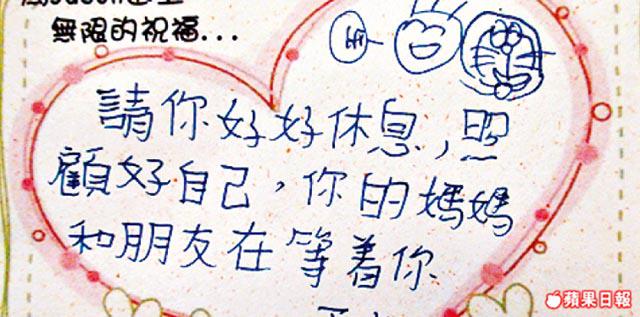 無限的祝福...
Hi
請你好好休息,照
顧好自己,你的媽媽
和朋友在等着你
蘋果日報